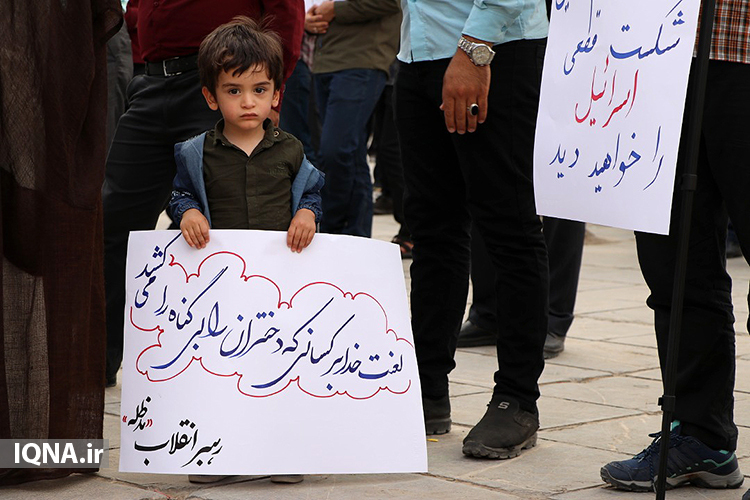 شکست قطعی
اسرائیل
را خواهید دید
لعنت خدا بر کسانی که دختران را بی گناه را می کشید
رهبر انقلاب «مدظله»
IQNA.ir